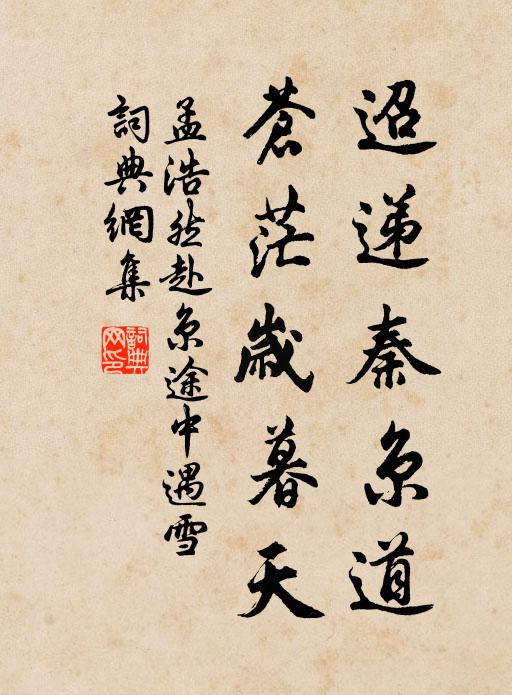 迢递秦京道
蒼茫歲暮天
孟浩然赴京途中遇雪
詞典網集
詞典網印